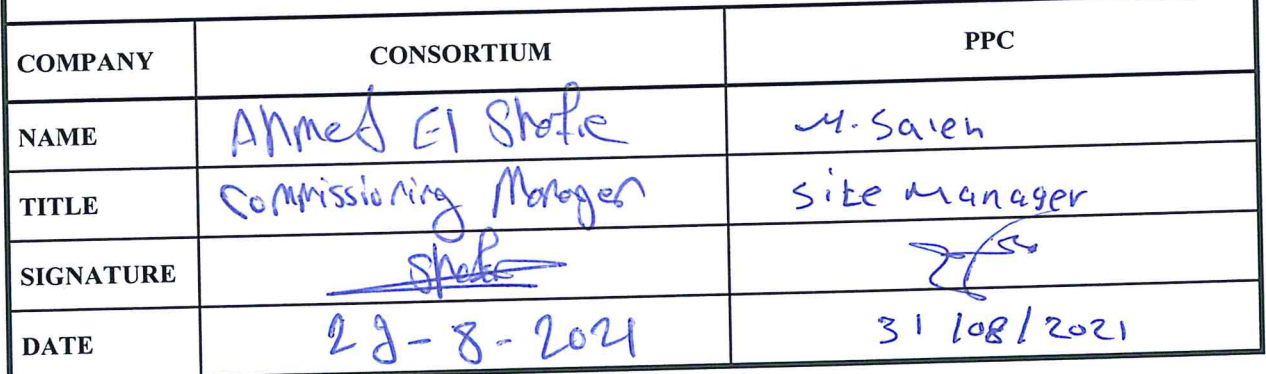 COMPANY CONSORTIUM PPC
NAME Ahmed El Shafie M. Saleh
TITLE Commissioning Manager Site Manager
SIGNATURE Shafie
DATE 29-8-2021 31/08/2021